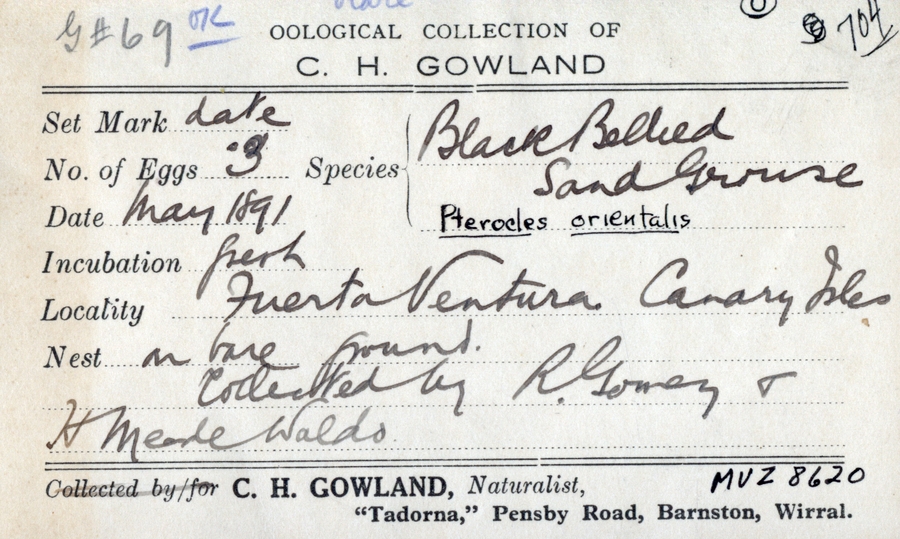 G#69 OK Rare
OOLOGICAL COLLECTION OF
C. H. GOWLAND
704
Set Mark date
No. of Eggs 3
Date May 1891
Species Black Bellied
Sand Grouse
Pterocles orientalis
Incubation fresh
Locality Fuerta Ventura. Canary Isles
Nest on bare ground.
Collected by R. Gomez &
H Meade Waldo
Collected by/for C. H. GOWLAND, Naturalist,
MVZ 8620
"Tadorna," Pensby Road, Barnston, Wirral.